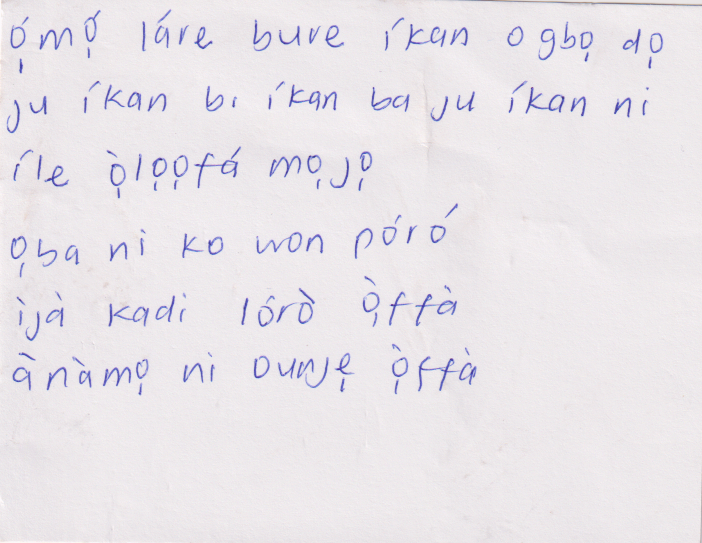 ọ́mọ́ láre bure íkan ogbọ dọ
ju íkan bi íkan ba ju íkan ni
íle ọ̀lọọfá mọjọ
ọba ni ko won póró
ìjà kadi lórò ọ̀ffà
ànàmọ ni ounjẹ ọ̀ffà